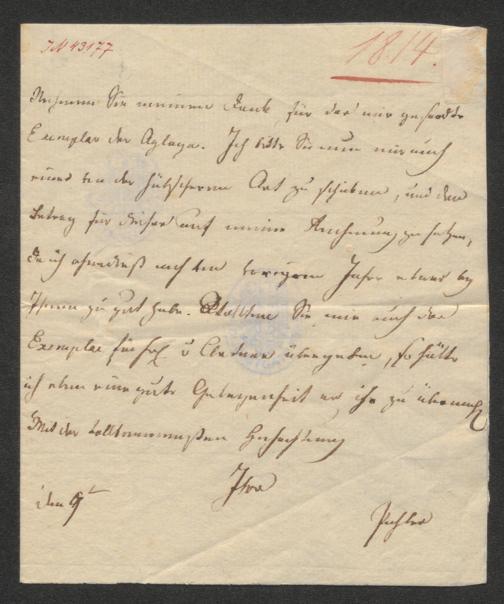 IN 43177
1814.
Nehmen Sie meinen Dank für das mir gesandte
Exemplar der Aglaja. Ich bitte Sie nun mir noch
eines von der hübscheren Art zu schicken, und den
Betrag für dieses auf meine Rechnung zu setzen,
da ich ohnedieß noch vom vorigen Jahre etwas bey
Ihnen zu gut habe. Wollten Sie mir auch das
Exemplar für v übergeben, so hätte
ich eben eine gute Gelegenheit es ihr zu übermach
Mit der vollkommensten Hochachtung
Ihre
den 9t
Pichler